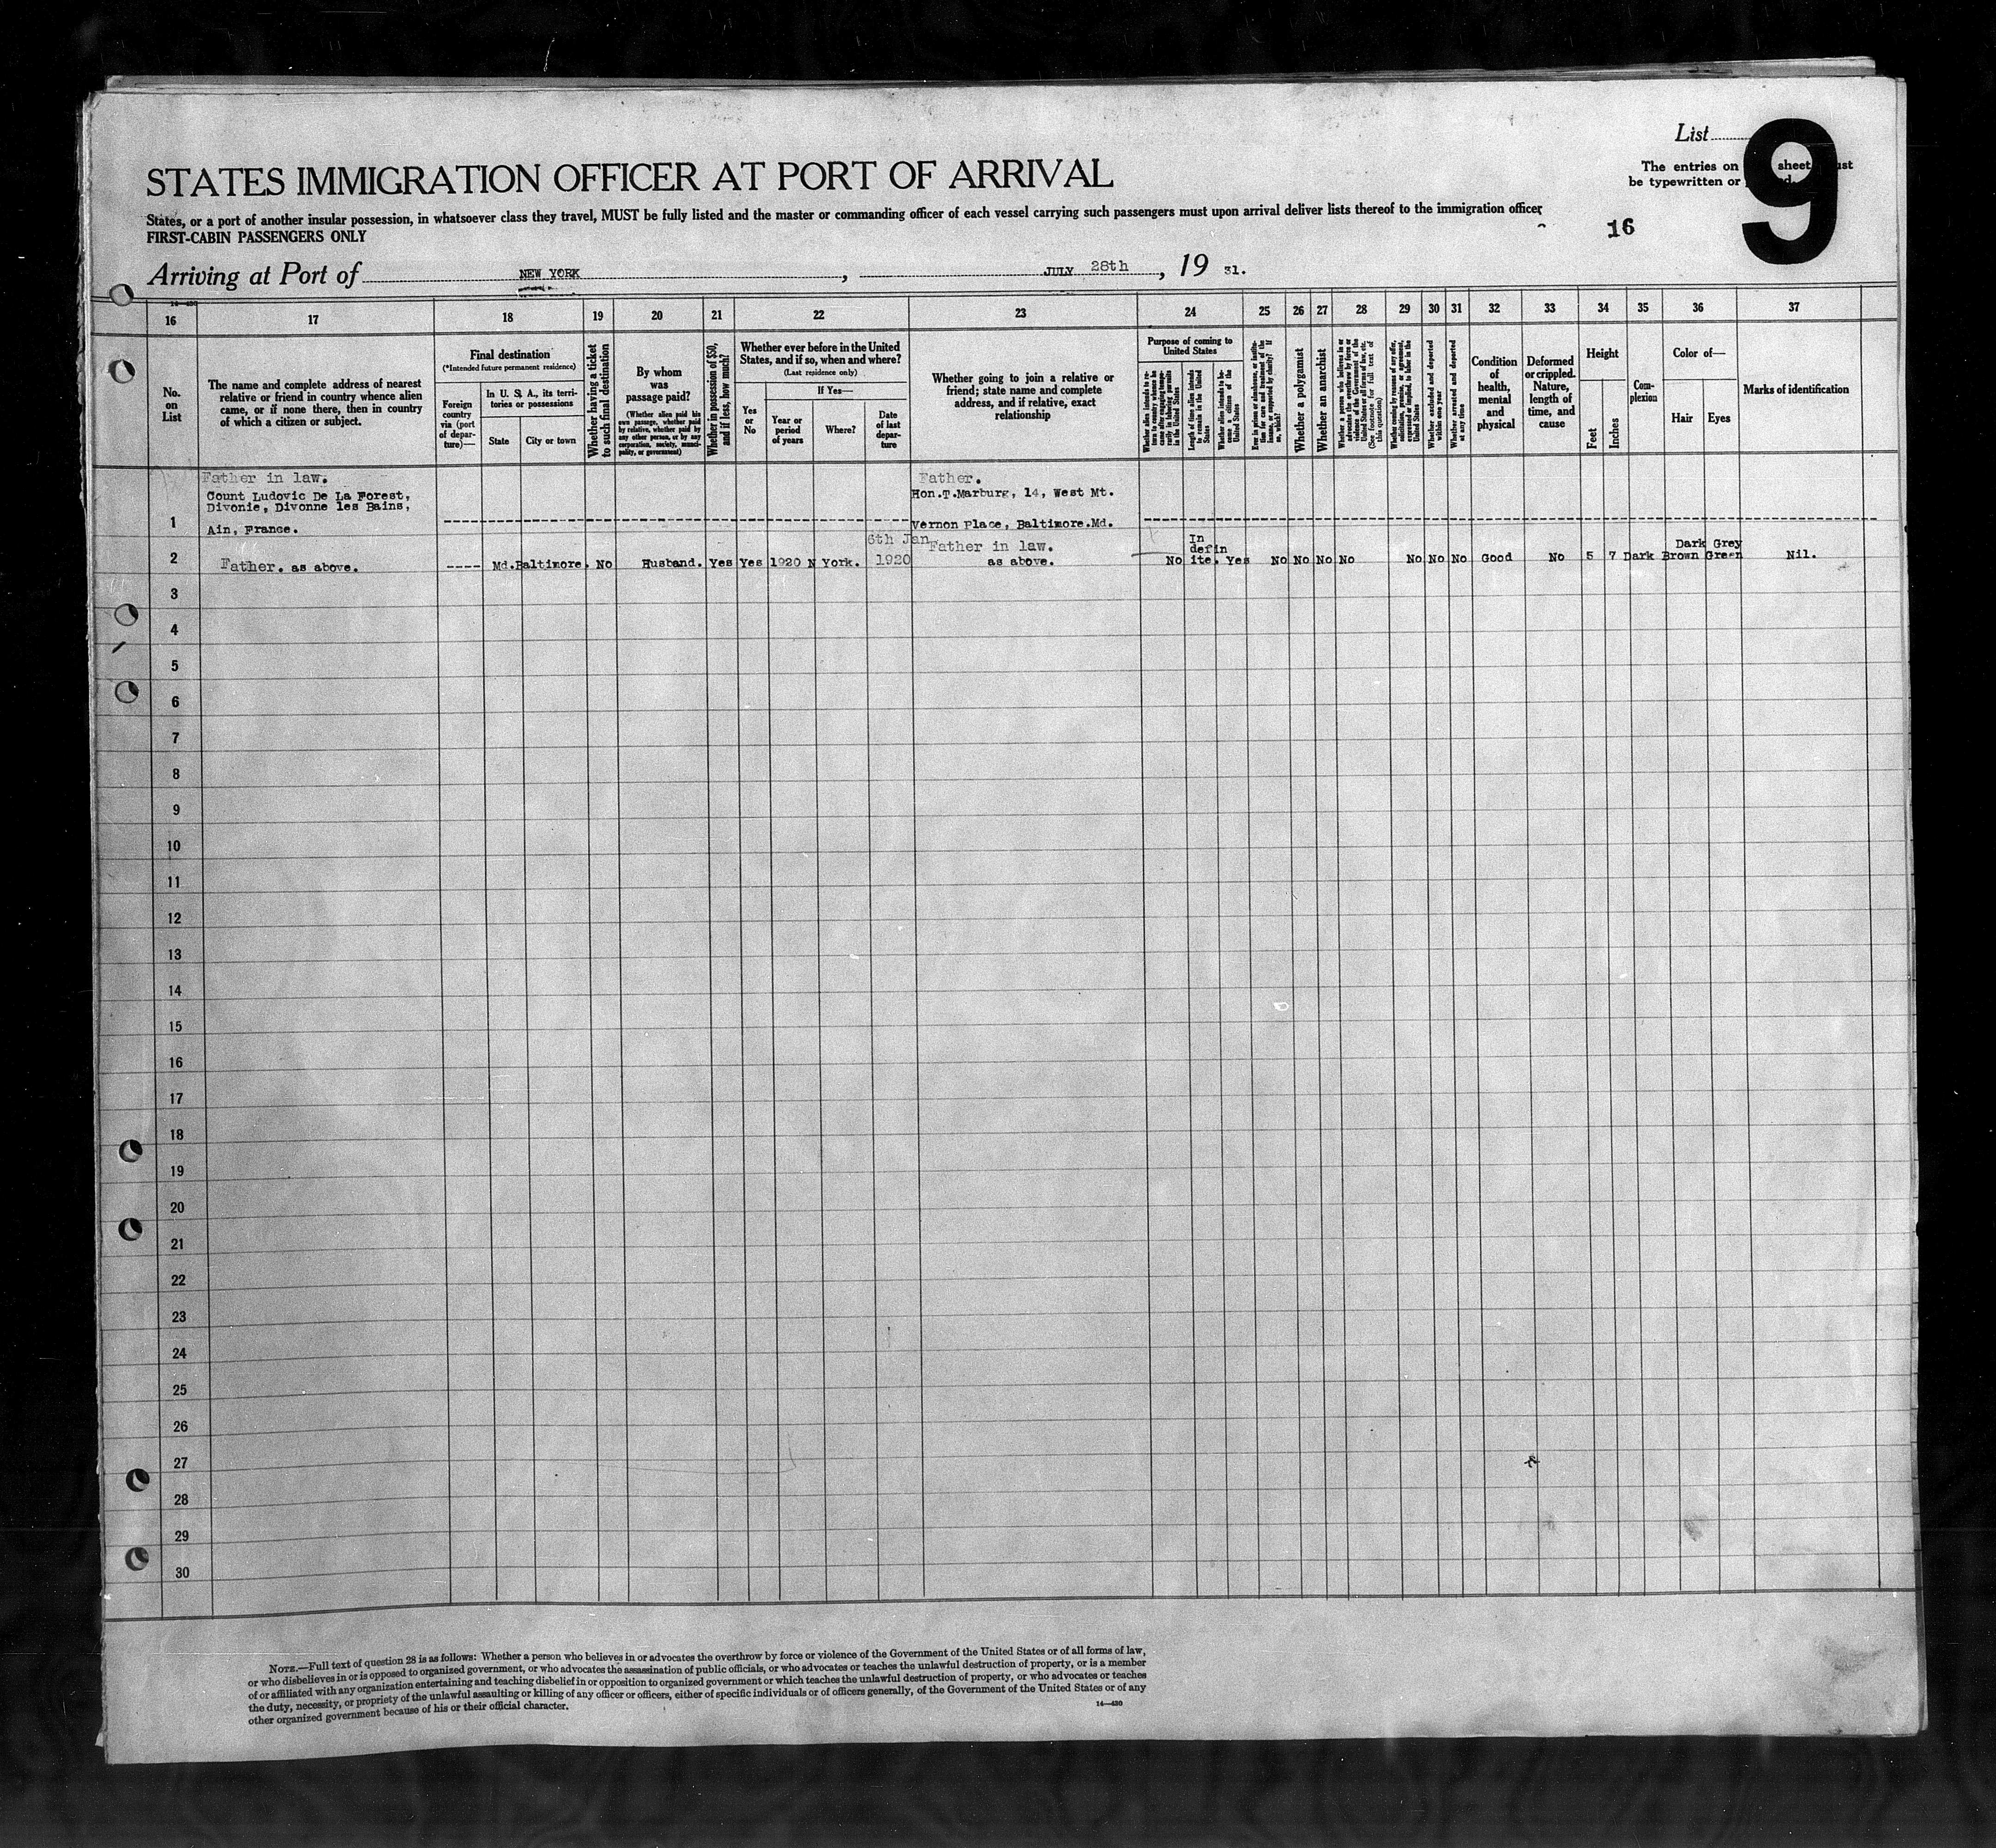 List
9
The entries on sheet
be typewritten or
STATES IMMIGRATION OFFICER AT PORT OF ARRIVAL
States, or a port of another insular possession, in whatsoever class they travel, MUST be fully listed and the master or commanding officer of each vessel carrying such passengers must upon arrival deliver lists thereof to the immigration officer
FIRST-CABIN PASSENGERS ONLY
16
Arriving at Port of NEW YORK, JULY 28th, 19 31.
16 17 18 19 20 21 22 23 24 25 26 27 28 29 30 31 32 33 34 35 36 37
No. on List
The name and complete address of nearest
relative or friend in country whence alien
came, or if none there, then in country
of which a citizen or subject.
Final destination
(*Intended future permanent residence)
Foreign country via (port of departure)—
In U. S. A., its territories or possessions
State
City or town
Whether having a ticket to such final destination
By whom was passage paid?
(Whether alien paid his own passage, whether paid by relative, whether paid by any other person, or by any corporation, society, municipality, or government)
Whether in possession of $50, and if less, how much?
Whether ever before in the United
States, and if so, when and where?
(Last residence only)
Yes or No
If Yes—
Year or period of years
Where?
Date of last departure
Whether going to join a relative or
friend; state name and complete
address, and if relative, exact
relationship
Purpose of coming to
United States
Length of time alien intends to remain in the United States
Whether alien intends to become a citizen of the United States
Whether a polygamist
Whether an anarchist
Whether excluded and deported within one year
Whether arrested and deported at any time
Condition of health, mental and physical
Deformed or crippled. Nature, length of time, and cause
Height
Feet
Inches
Complexion
Color of—
Hair
Eyes
Marks of identification
Father in law.
Count Ludovic De La Forest,
Divonie, Divonne les Bains,
Ain, France.
Father.
Hon.T.Marburg, 14, West Mt.
Vernon Place, Baltimore.Md.
1
2 Father. as above. ---- Md. Baltimore. No Husband. Yes Yes 1920 N York. 6th Jan 1920 Father in law. as above. No In definite. Yes No No No No No No No Good No 5 7 Dark Dark Brown Grey Green Nil.
3
4
5
6
7
8
9
10
11
12
13
14
15
16
17
18
19
20
21
22
23
24
25
26
27
28
29
30
NOTE.—Full text of question 28 is as follows: Whether a person who believes in or advocates the overthrow by force or violence of the Government of the United States or of all forms of law,
or who disbelieves in or is opposed to organized government, or who advocates the assassination of public officials, or who advocates or teaches the unlawful destruction of property, or is a member
of or affiliated with any organization entertaining and teaching disbelief in or opposition to organized government or which teaches the unlawful destruction of property, or who advocates or teaches
the duty, necessity, or propriety of the unlawful assaulting or killing of any officer or officers, either of specific individuals or of officers generally, of the Government of the United States or of any
other organized government because of his or their official character.
14—430